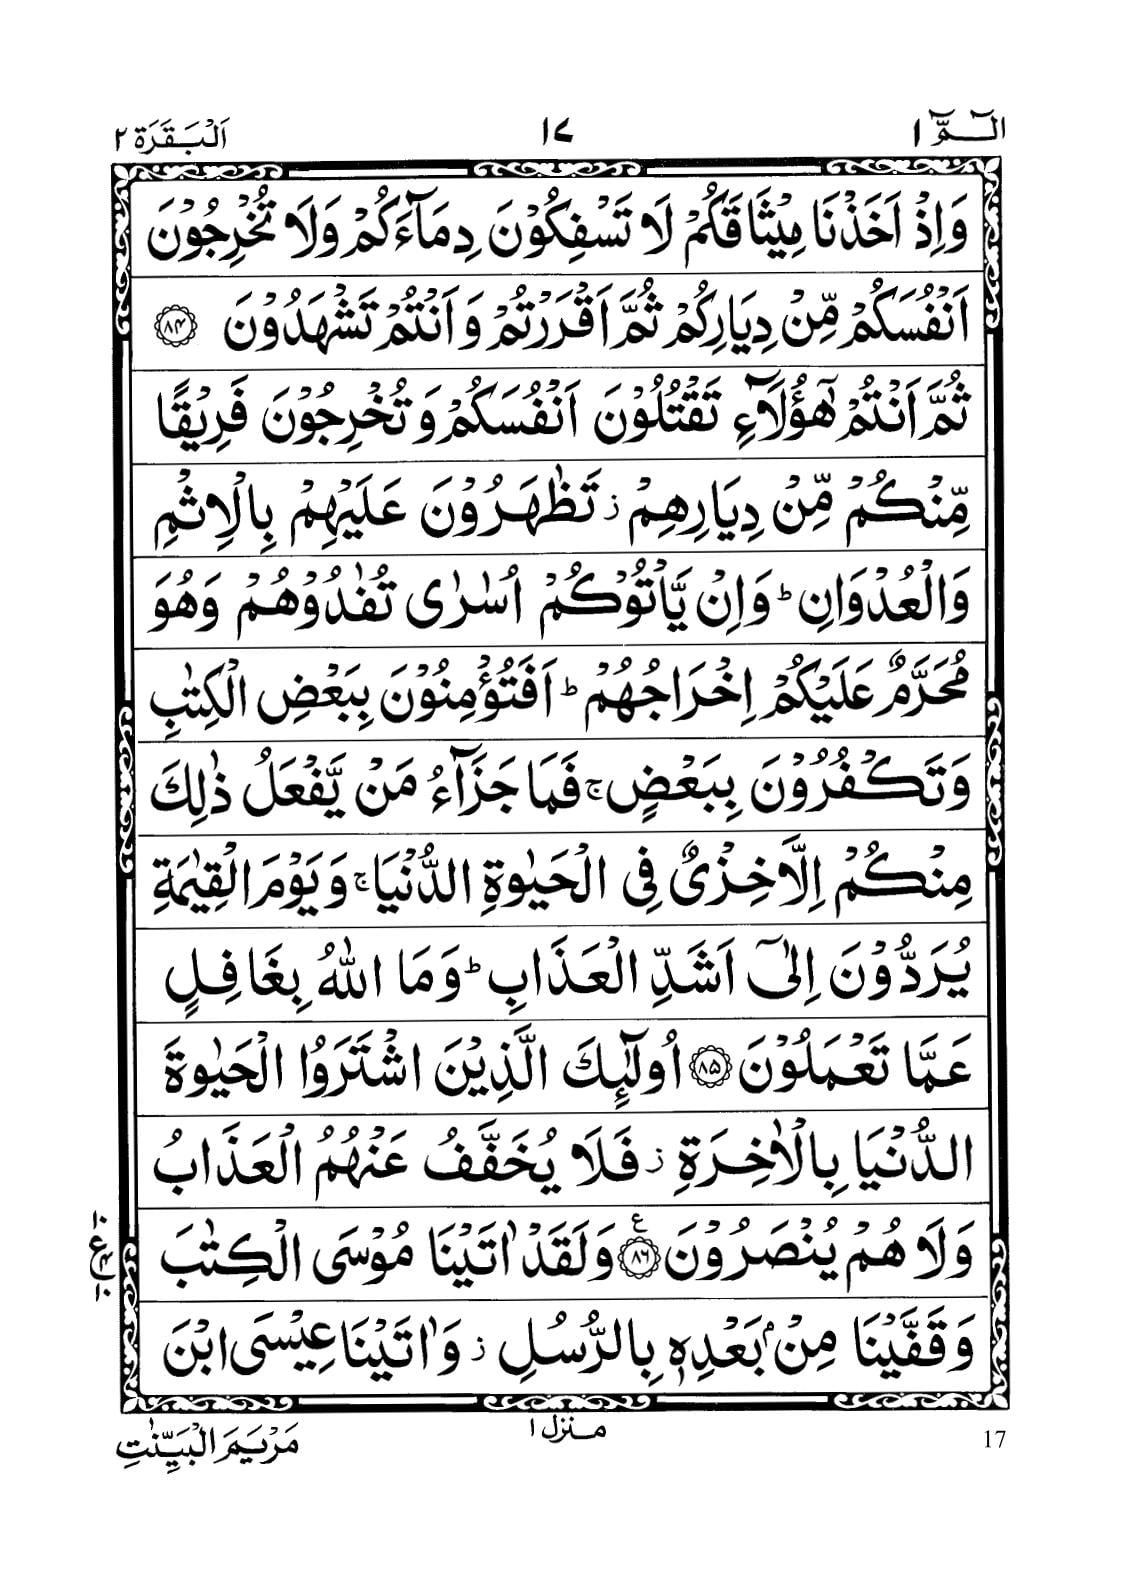 الٓـمّٓ ١ ١٧ اَلْبَقَرَة ٢
وَاِذْ اَخَذْنَا مِيْثَاقَكُمْ لَا تَسْفِكُوْنَ دِمَآءَكُمْ وَلَا تُخْرِجُوْنَ
اَنْفُسَكُمْ مِّنْ دِيَارِكُمْ ثُمَّ اَقْرَرْتُمْ وَاَنْتُمْ تَشْهَدُوْنَ ﴿۸۴﴾
ثُمَّ اَنْتُمْ هٰٓؤُلَآءِ تَقْتُلُوْنَ اَنْفُسَكُمْ وَتُخْرِجُوْنَ فَرِيْقًا
مِّنْكُمْ مِّنْ دِيَارِهِمْ ز تَظٰهَرُوْنَ عَلَيْهِمْ بِالْاِثْمِ
وَالْعُدْوَانِ ؕ وَاِنْ يَّاْتُوْكُمْ اُسٰرٰى تُفٰدُوْهُمْ وَهُوَ
مُحَرَّمٌ عَلَيْكُمْ اِخْرَاجُهُمْ ؕ اَفَتُؤْمِنُوْنَ بِبَعْضِ الْكِتٰبِ
وَتَكْفُرُوْنَ بِبَعْضٍ ۚ فَمَا جَزَآءُ مَنْ يَّفْعَلُ ذٰلِكَ
مِنْكُمْ اِلَّا خِزْىٌ فِى الْحَيٰوةِ الدُّنْيَا ۚ وَيَوْمَ الْقِيٰمَةِ
يُرَدُّوْنَ اِلٰٓى اَشَدِّ الْعَذَابِ ؕ وَمَا اللّٰهُ بِغَافِلٍ
عَمَّا تَعْمَلُوْنَ ﴿۸۵﴾ اُولٰٓئِكَ الَّذِيْنَ اشْتَرَوُا الْحَيٰوةَ
الدُّنْيَا بِالْاٰخِرَةِ ز فَلَا يُخَفَّفُ عَنْهُمُ الْعَذَابُ
وَلَا هُمْ يُنْصَرُوْنَ ﴿۸۶﴾ ع وَلَقَدْ اٰتَيْنَا مُوْسَى الْكِتٰبَ
وَقَفَّيْنَا مِنْۢ بَعْدِهٖ بِالرُّسُلِ ز وَاٰتَيْنَا عِيْسَى ابْنَ
17 منزل ١ مَرْيَمَ الْبَيِّنٰتِ